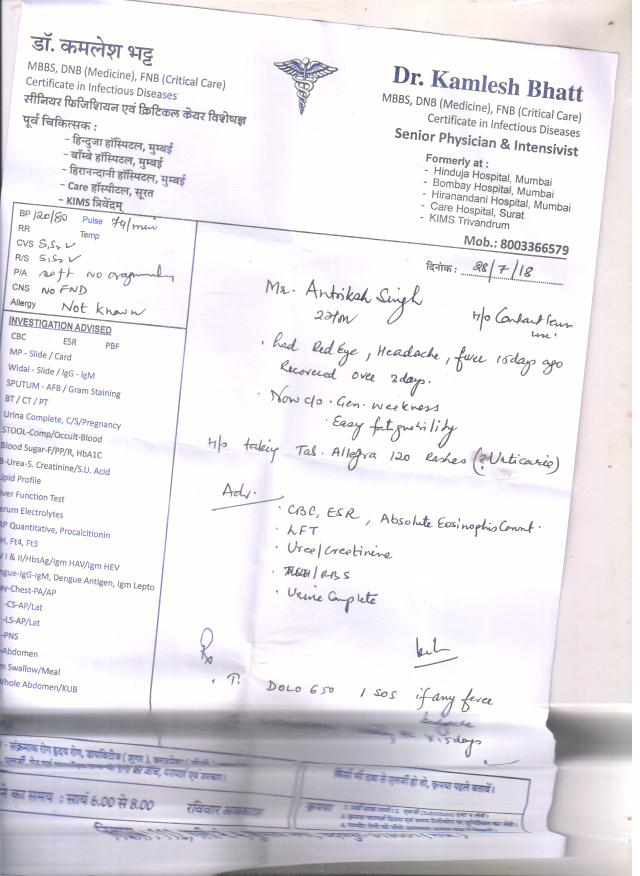 डॉ. कमलेश भट्ट
MBBS, DNB (Medicine), FNB (Critical Care)
Certificate in Infectious Diseases
सीनियर फिजिशियन एवं क्रिटिकल केयर विशेषज्ञ
पूर्व चिकित्सक :
- हिन्दुजा हॉस्पिटल, मुम्बई
- बॉम्बे हॉस्पिटल, मुम्बई
- हिरानन्दानी हॉस्पिटल, मुम्बई
- Care हॉस्पीटल, सूरत
- KIMS त्रिवेंद्रम्
Dr. Kamlesh Bhatt
MBBS, DNB (Medicine), FNB (Critical Care)
Certificate in Infectious Diseases
Senior Physician & Intensivist
Formerly at :
- Hinduja Hospital, Mumbai
- Bombay Hospital, Mumbai
- Hiranandani Hospital, Mumbai
- Care Hospital, Surat
- KIMS Trivandrum
Mob.: 8003366579
BP 120/80 Pulse 74/min
RR Temp
CVS S1S2
R/S
P/A soft No organomegaly
CNS No FND
Allergy Not known
INVESTIGATION ADVISED
CBC ESR PBF
MP - Slide / Card
Widal - Slide / IgG - IgM
SPUTUM - AFB / Gram Staining
BT / CT / PT
Urina Complete, C/S/Pregnancy
STOOL-Comp/Occult-Blood
Blood Sugar-F/PP/R, HbA1C
B-Urea-S. Creatinine/S.U. Acid
Lipid Profile
ver Function Test
erum Electrolytes
RP Quantitative, Procalcitonin
H, Ft4, Ft3
/ I & II/HbsAg/Igm HAV/Igm HEV
ngue-IgG-IgM, Dengue Antigen, Igm Lepto
ay-Chest-PA/AP
-CS-AP/Lat
-LS-AP/Lat
-PNS
-Abdomen
m Swallow/Meal
Whole Abdomen/KUB
दिनांक : 28/7/18
Mr. Antriksh Singh
H/o Contact lens
use.
. had Red Eye, Headache, fever 15 days ago
Recovered over 3 days.
. Now c/o . Gen. weekness
. Easy fatigubility
H/o taking Tab. Allegra 120 Rashes (? Urticaria)
Adv.
. CBC, ESR, Absolute Eosinophis Count.
. LFT
. Urea/Creatinine
/ RBS
. Urine Complete
Rx
. T. DOLO 650 1 SOS if any fever
days
- संक्रमाक रोग हृदय रोग, डायबिटीज (शुगर),
ने का समय : सायं 6.00 से 8.00 रविवार अवकाश
किसी भी दवा से एलर्जी हो तो, कृपया पहले बतावें।
कृपया